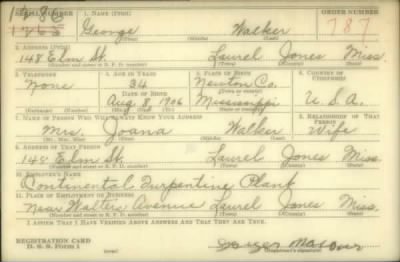 1286
SERIAL NUMBER 1. NAME (Print) ORDER NUMBER
George Walker 787
(First) (Middle) (Last)
2. ADDRESS (Print)
148 Elm St. Laurel Jones Miss.
(Number and street or R. F. D. number) (Town) (County) (State)
3. TELEPHONE 4. AGE IN YEARS 5. PLACE OF BIRTH 6. COUNTRY OF CITIZENSHIP
None 34 Newton Co.
DATE OF BIRTH (Town or county)
Aug. 8, 1906 Mississippi U.S.A.
(Exchange) (Number) (Mo.) (Day) (Yr.) (State or country)
7. NAME OF PERSON WHO WILL ALWAYS KNOW YOUR ADDRESS 8. RELATIONSHIP OF THAT PERSON
Mrs. Joana Walker Wife
(Mr., Mrs., Miss) (First) (Middle) (Last)
9. ADDRESS OF THAT PERSON
148 Elm St. Laurel Jones Miss.
(Number and street or R. F. D. number) (Town) (County) (State)
10. EMPLOYER'S NAME
Continental Turpentine Plant
11. PLACE OF EMPLOYMENT OR BUSINESS
Near Walters Avenue Laurel Jones Miss.
(Number and street or R. F. D. number) (Town) (County) (State)
I AFFIRM THAT I HAVE VERIFIED ABOVE ANSWERS AND THAT THEY ARE TRUE.
REGISTRATION CARD
D. S. S. Form 1 (Registrant's signature)